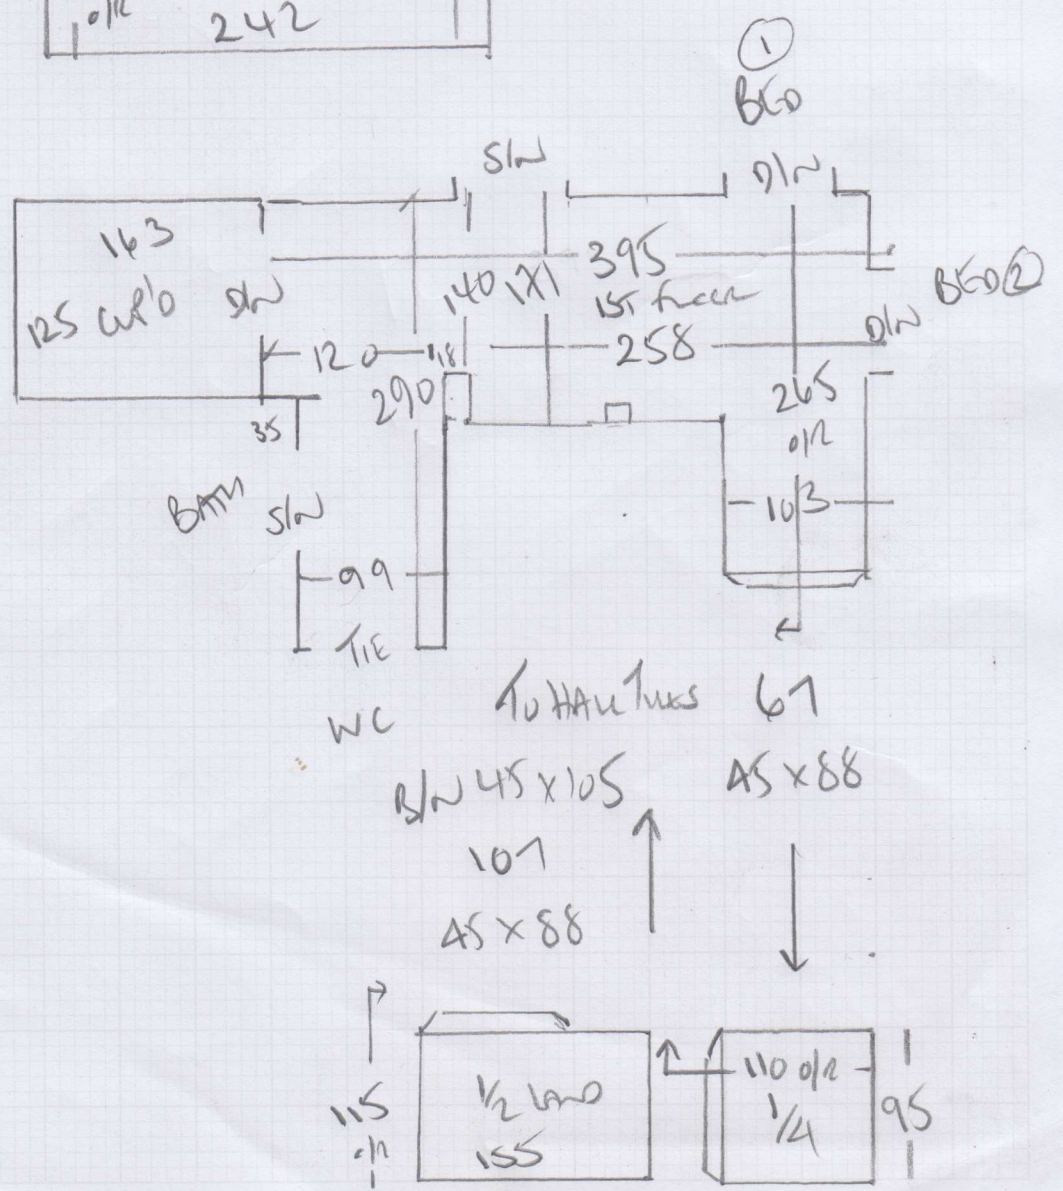 O/R
242
①
BED
S/N
D/N
163
125 CUP'D
D/N
395
140 171
1ST FLOOR
BED②
D/N
120
18
258
290
265
O/R
35
BATH
S/N
103
99
T/E
WC
TO HALL
67
B/N 45 X 105
45 X 88
107
45 X 88
115
O/R
1/2 LAND
155
110 O/R
1/4
95